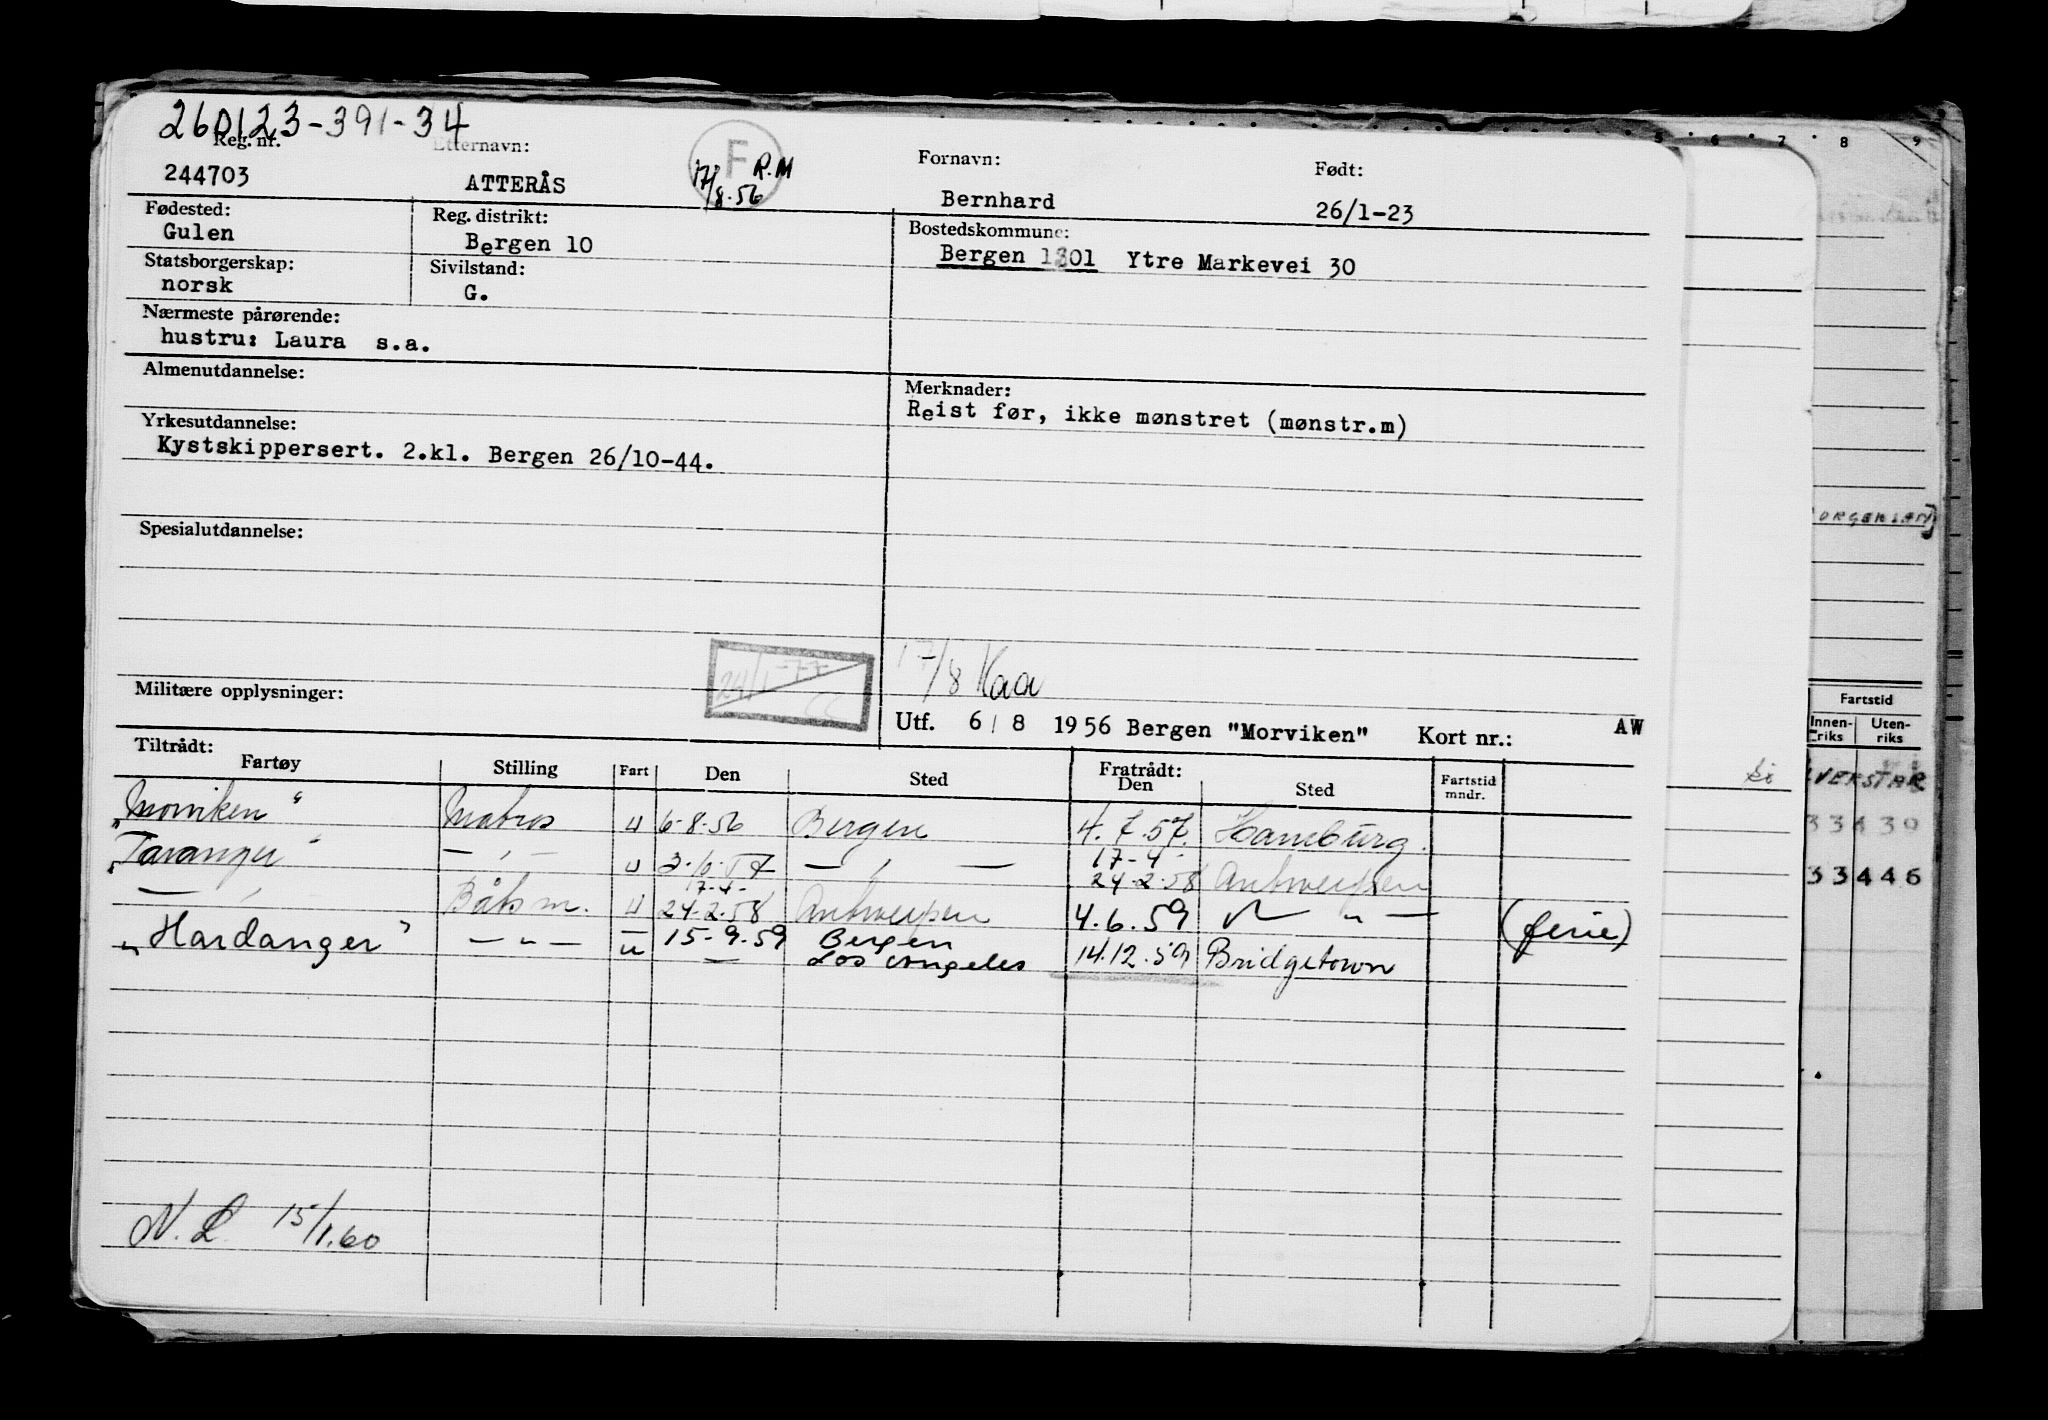 260123-391-34
Reg. nr. Etternavn: Fornavn: Født:
244703 ATTERÅS F 17/8.56 R.M Bernhard 26/1-23
Fødested: Reg. distrikt: Bostedskommune:
Gulen Bergen 10 Bergen 1301 Ytre Markevei 30
Statsborgerskap: Sivilstand:
norsk G.
Nærmeste pårørende:
hustru: Laura s.a.
Almenutdannelse: Merknader:
Reist før, ikke mønstret (mønstr.m)
Yrkesutdannelse:
Kystskippersert. 2.kl. Bergen 26/10-44.
Spesialutdannelse:
24/1-77 17/8 Kaa
Militære opplysninger:
Utf. 6/8 1956 Bergen "Morviken" Kort nr.: AW
Tiltrådt: Fratrådt:
Fartøy Stilling Fart Den Sted Den Sted Fartstid mndr.
"Morviken" Matros u 6-8.56 Bergen 4.7.57. Hamburg.
"Tavanger" — " — u — " — 17-4-
24-2-58 Antwerpen
17-4-
— " — Båtsm. u 24.2.58 Antwerpen 4.6.59 — " — (ferie)
"Hardanger" — " — u 15-9-59 Bergen
— Los Angeles 14.12.59 Bridgetown
N. L. 15/1.60
5 6 7 8 9
Fartstid
Innen- Uten-
riks riks
33439
33446